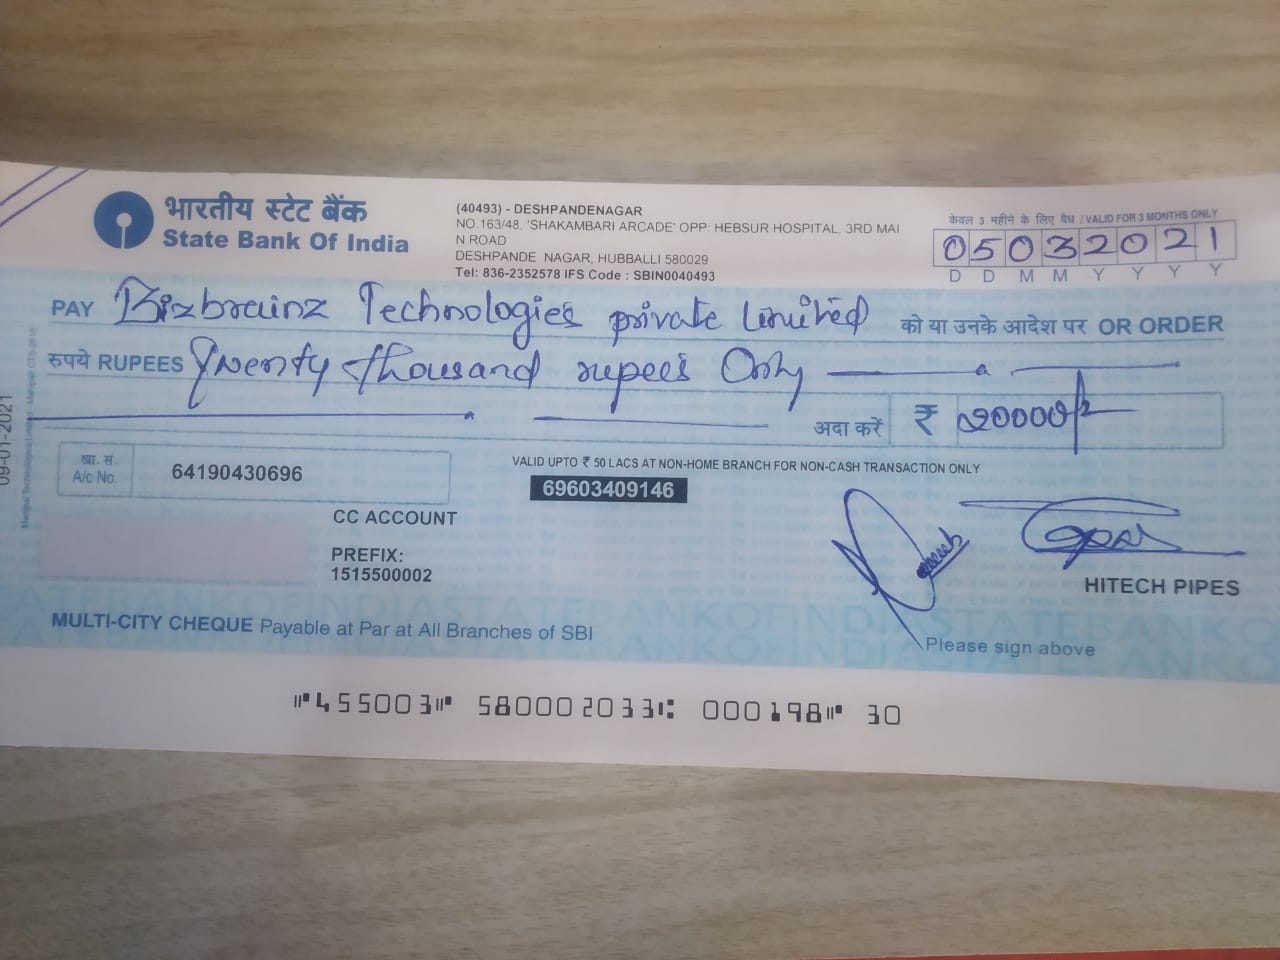 भारतीय स्टेट बैंक
State Bank Of India
(40493) - DESHPANDENAGAR
NO.163/48, 'SHAKAMBARI ARCADE' OPP: HEBSUR HOSPITAL, 3RD MAI
N ROAD
DESHPANDE NAGAR, HUBBALLI 580029
Tel: 836-2352578 IFS Code : SBIN0040493
केवल 3 महीने के लिए वैध / VALID FOR 3 MONTHS ONLY
05032021
D D M M Y Y Y Y
PAY Bizbrainz Technologies private Limited को या उनके आदेश पर OR ORDER
रुपये RUPEES Twenty thousand rupees Only
अदा करें ₹ 20000/-
09-01-2021
खा. सं. A/c No. 64190430696
VALID UPTO ₹ 50 LACS AT NON-HOME BRANCH FOR NON-CASH TRANSACTION ONLY
69603409146
CC ACCOUNT
PREFIX:
1515500002
HITECH PIPES
MULTI-CITY CHEQUE Payable at Par at All Branches of SBI
Please sign above
⑈455003⑈ 580002033⑆ 000198⑈ 30